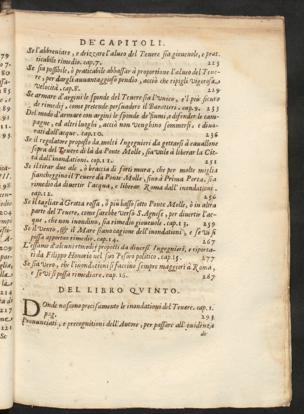 DE' CAPITOLI.
Se l'abbreuiare, e drizzare l'alueo del Teuere sia gioueuole, e prat-
ticabile rimedio. cap. 7. 223
Se sia possibile, ò praticabile abbassar à proportione l'alueo del Teue-
re, per dargli auuantaggioso pendio, acciò che ripigli vigorosa
velocità. cap. 8. 229
Se armare d'argini le sponde del Teuere sia l'vnico, e'l più sicuro
de rimedij, come pretende persuadere il Baratteri. cap. 9. 233
Del modo d'armare con argini le sponde de' fiumi, difender le cam-
pagne, ed altri luoghi, acciò non venghino sommersi, e diuo-
rati dall'acque. cap. 10. 236
Se il regolatore proposto da molti Ingegneri da gettarsi à cauallone
sopra del Teuere di là da Ponte Molle, sia vtile à liberar la Cit-
tà dall'inondationi. cap. 11. 251
Se il tirar due ale, ò braccia di forti mura, che per molte miglia
fiancheggino il Teuere da Ponte Molle, sino à Prima Porta, sia
rimedio da diuertir l'acque, e liberar Roma dall'inondationi.
cap. 12. 256
Se il tagliar à Gratta rossa, ò più basso sotto Ponte Molle, ò in altra
parte del Teuere, come sarebbe verso S. Agnese, per diuertir l'ac-
que, che non inondino, sia rimedio gioueuole. cap. 13. 259
Se il Vento, ò sia il Mare siano cagione dell'inondationi, e se vi si
possa apportar rimedio. cap. 14. 267
L'essame d'alcuni rimedij proposti da diuersi Ingegneri, e riporta-
ti da Filippo Honorio nel suo Tesoro politico. cap. 15. 277
Se sia vero, che l'inondationi si faccino sempre maggiori à Roma,
e se vi si possa rimediare. cap. 16. 267
DEL LIBRO QVINTO.
Donde nascano precisamente le inondationi del Teuere. cap. 1.
pag. 293
Pronuntiati, e precognitioni dell'Autore, per passare all'euidenza
de